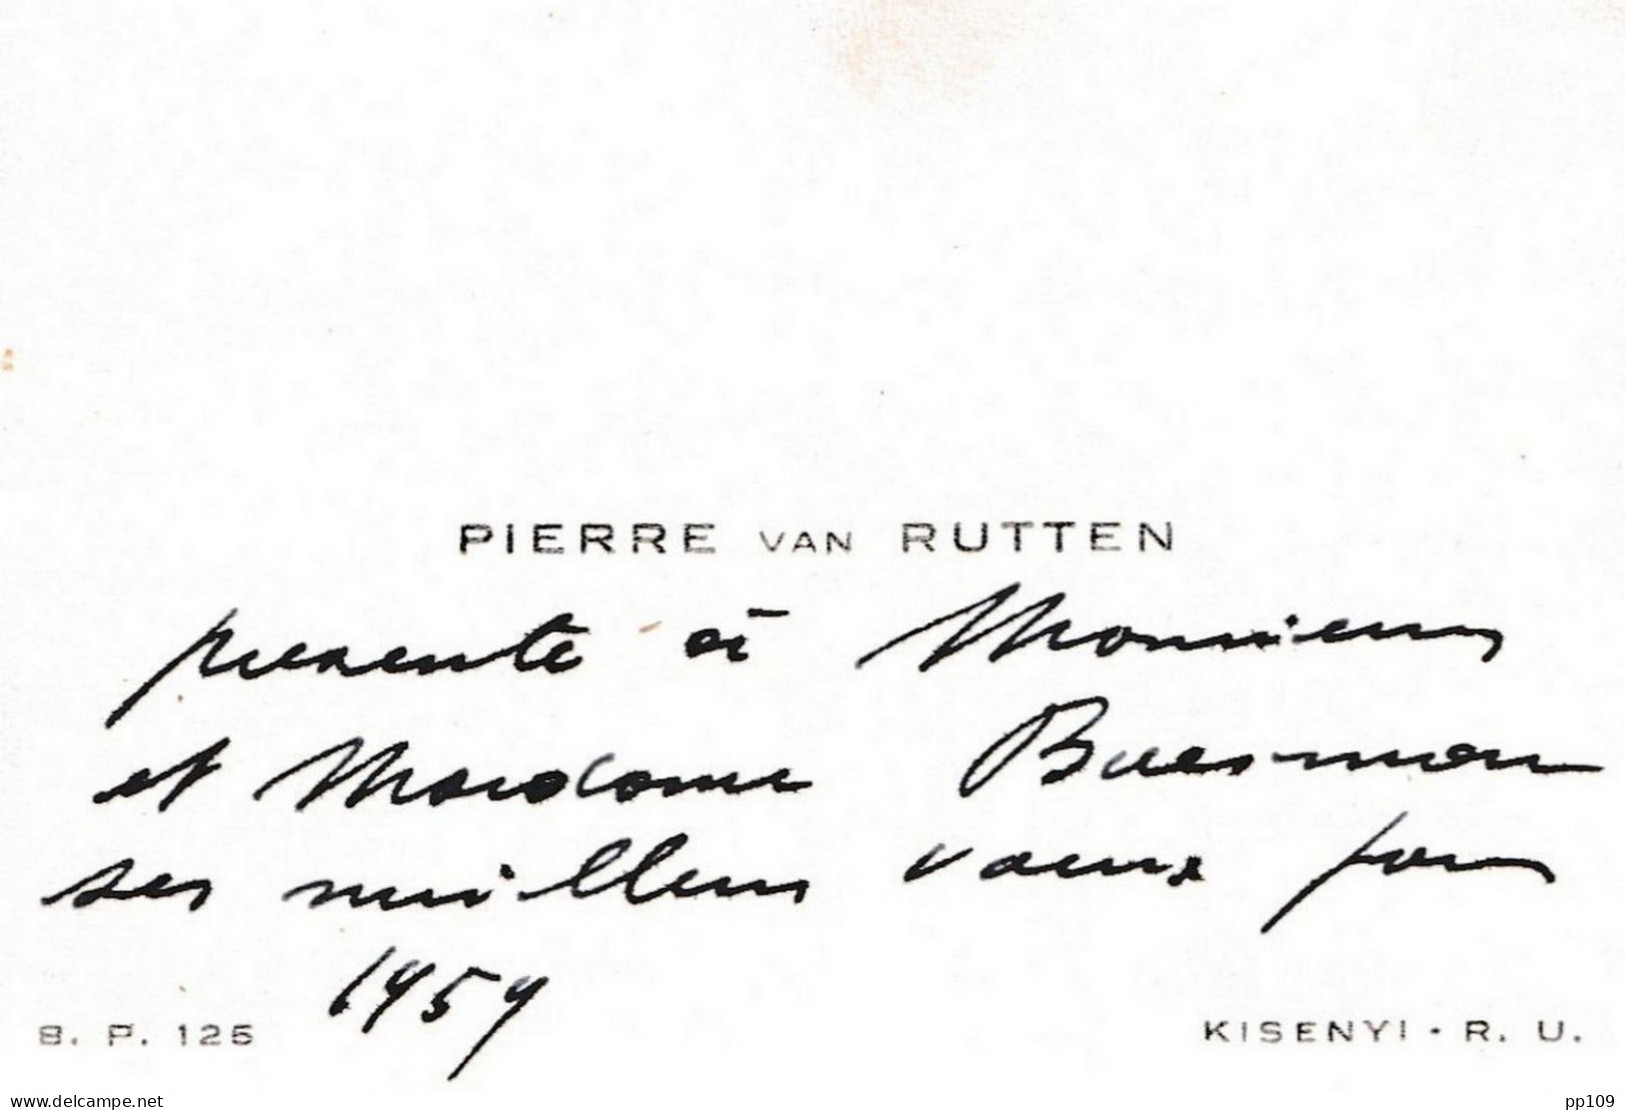 PIERRE VAN RUTTEN
présente à Monsieur
et Madame
ses meilleurs vœux pour
1959
B. P. 125
KISENYI - R. U.
www.delcampe.net
pp109